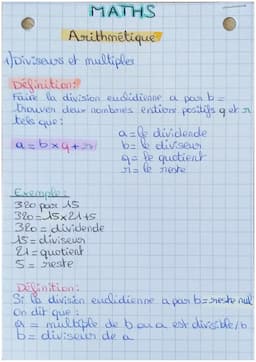 MATHS
Arithmétique
1) Diviseurs et multiples
Définition:
Faire la division euclidienne a par b =
trouver deux nombres entiers positifs q et r
tels que:
a = b x q + r
a = le dividende
b = le diviseur
q = le quotient
r = le reste
Exemple:
320 par 15
320 = 15 x 21 + 5
320 = dividende
15 = diviseur
21 = quotient
5 = reste
Définition:
Si la division euclidienne a par b = reste nul
on dit que:
a = multiple de b ou a est divisible / b
b = diviseur de a